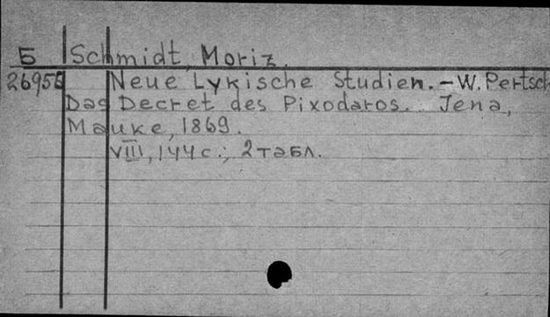 Б Schmidt, Moriz.
26955 Neue Lykische Studien. - W. Pertsch
Das Decret des Pixodaros. Jena,
Mauke, 1869.
VIII, 144 с.; 2 табл.